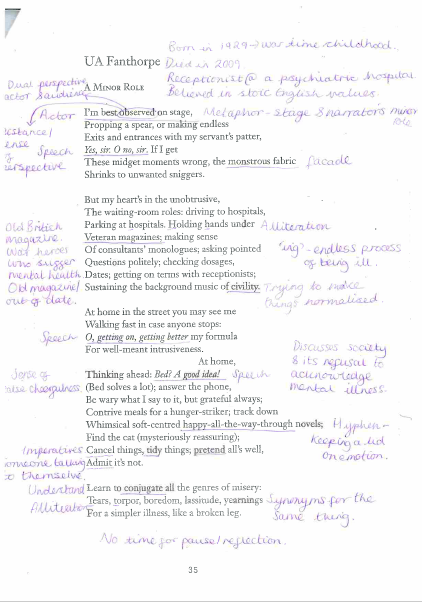 Born in 1929 → war time childhood.
UA Fanthorpe Died in 2009.
Receptionist @ a psychiatric hospital
Believed in stoic English values.
Dual perspective
actor & audience
A MINOR ROLE
Actor
I'm best observed on stage,
Metaphor - stage & narrators minor
role
Propping a spear, or making endless
Exits and entrances with my servant's patter,
Speech
Yes, sir. O no, sir. If I get
perspective
These midget moments wrong, the monstrous fabric
facade
Shrinks to unwanted sniggers.
But my heart's in the unobtrusive,
The waiting-room roles: driving to hospitals,
Parking at hospitals. Holding hands under
Alliteration
Old British
magazine.
War heroes
who suffer
mental health
Old magazine/
out of date.
Veteran magazines; making sense
Of consultants' monologues; asking pointed
Questions politely; checking dosages,
Dates; getting on terms with receptionists;
Sustaining the background music of civility.
'ing' - endless process
of being ill.
Trying to make
things normalised.
At home in the street you may see me
Walking fast in case anyone stops:
Speech
O, getting on, getting better my formula
For well-meant intrusiveness.
At home,
Discusses society
& its refusal to
acknowledge
mental illness.
Sense of
false cheerfulness.
Thinking ahead: Bed? A good idea!
Speech
(Bed solves a lot); answer the phone,
Be wary what I say to it, but grateful always;
Contrive meals for a hunger-striker; track down
Whimsical soft-centred happy-all-the-way-through novels;
Hyphen -
Keeping a lid
on emotion.
Find the cat (mysteriously reassuring);
Imperatives
someone talking
to themselves.
Cancel things, tidy things; pretend all's well,
Admit it's not.
Understand
Learn to conjugate all the genres of misery:
Alliteration
Tears, torpor, boredom, lassitude, yearnings
Synonyms for the
same thing.
For a simpler illness, like a broken leg.
No time for pause/reflection.
35